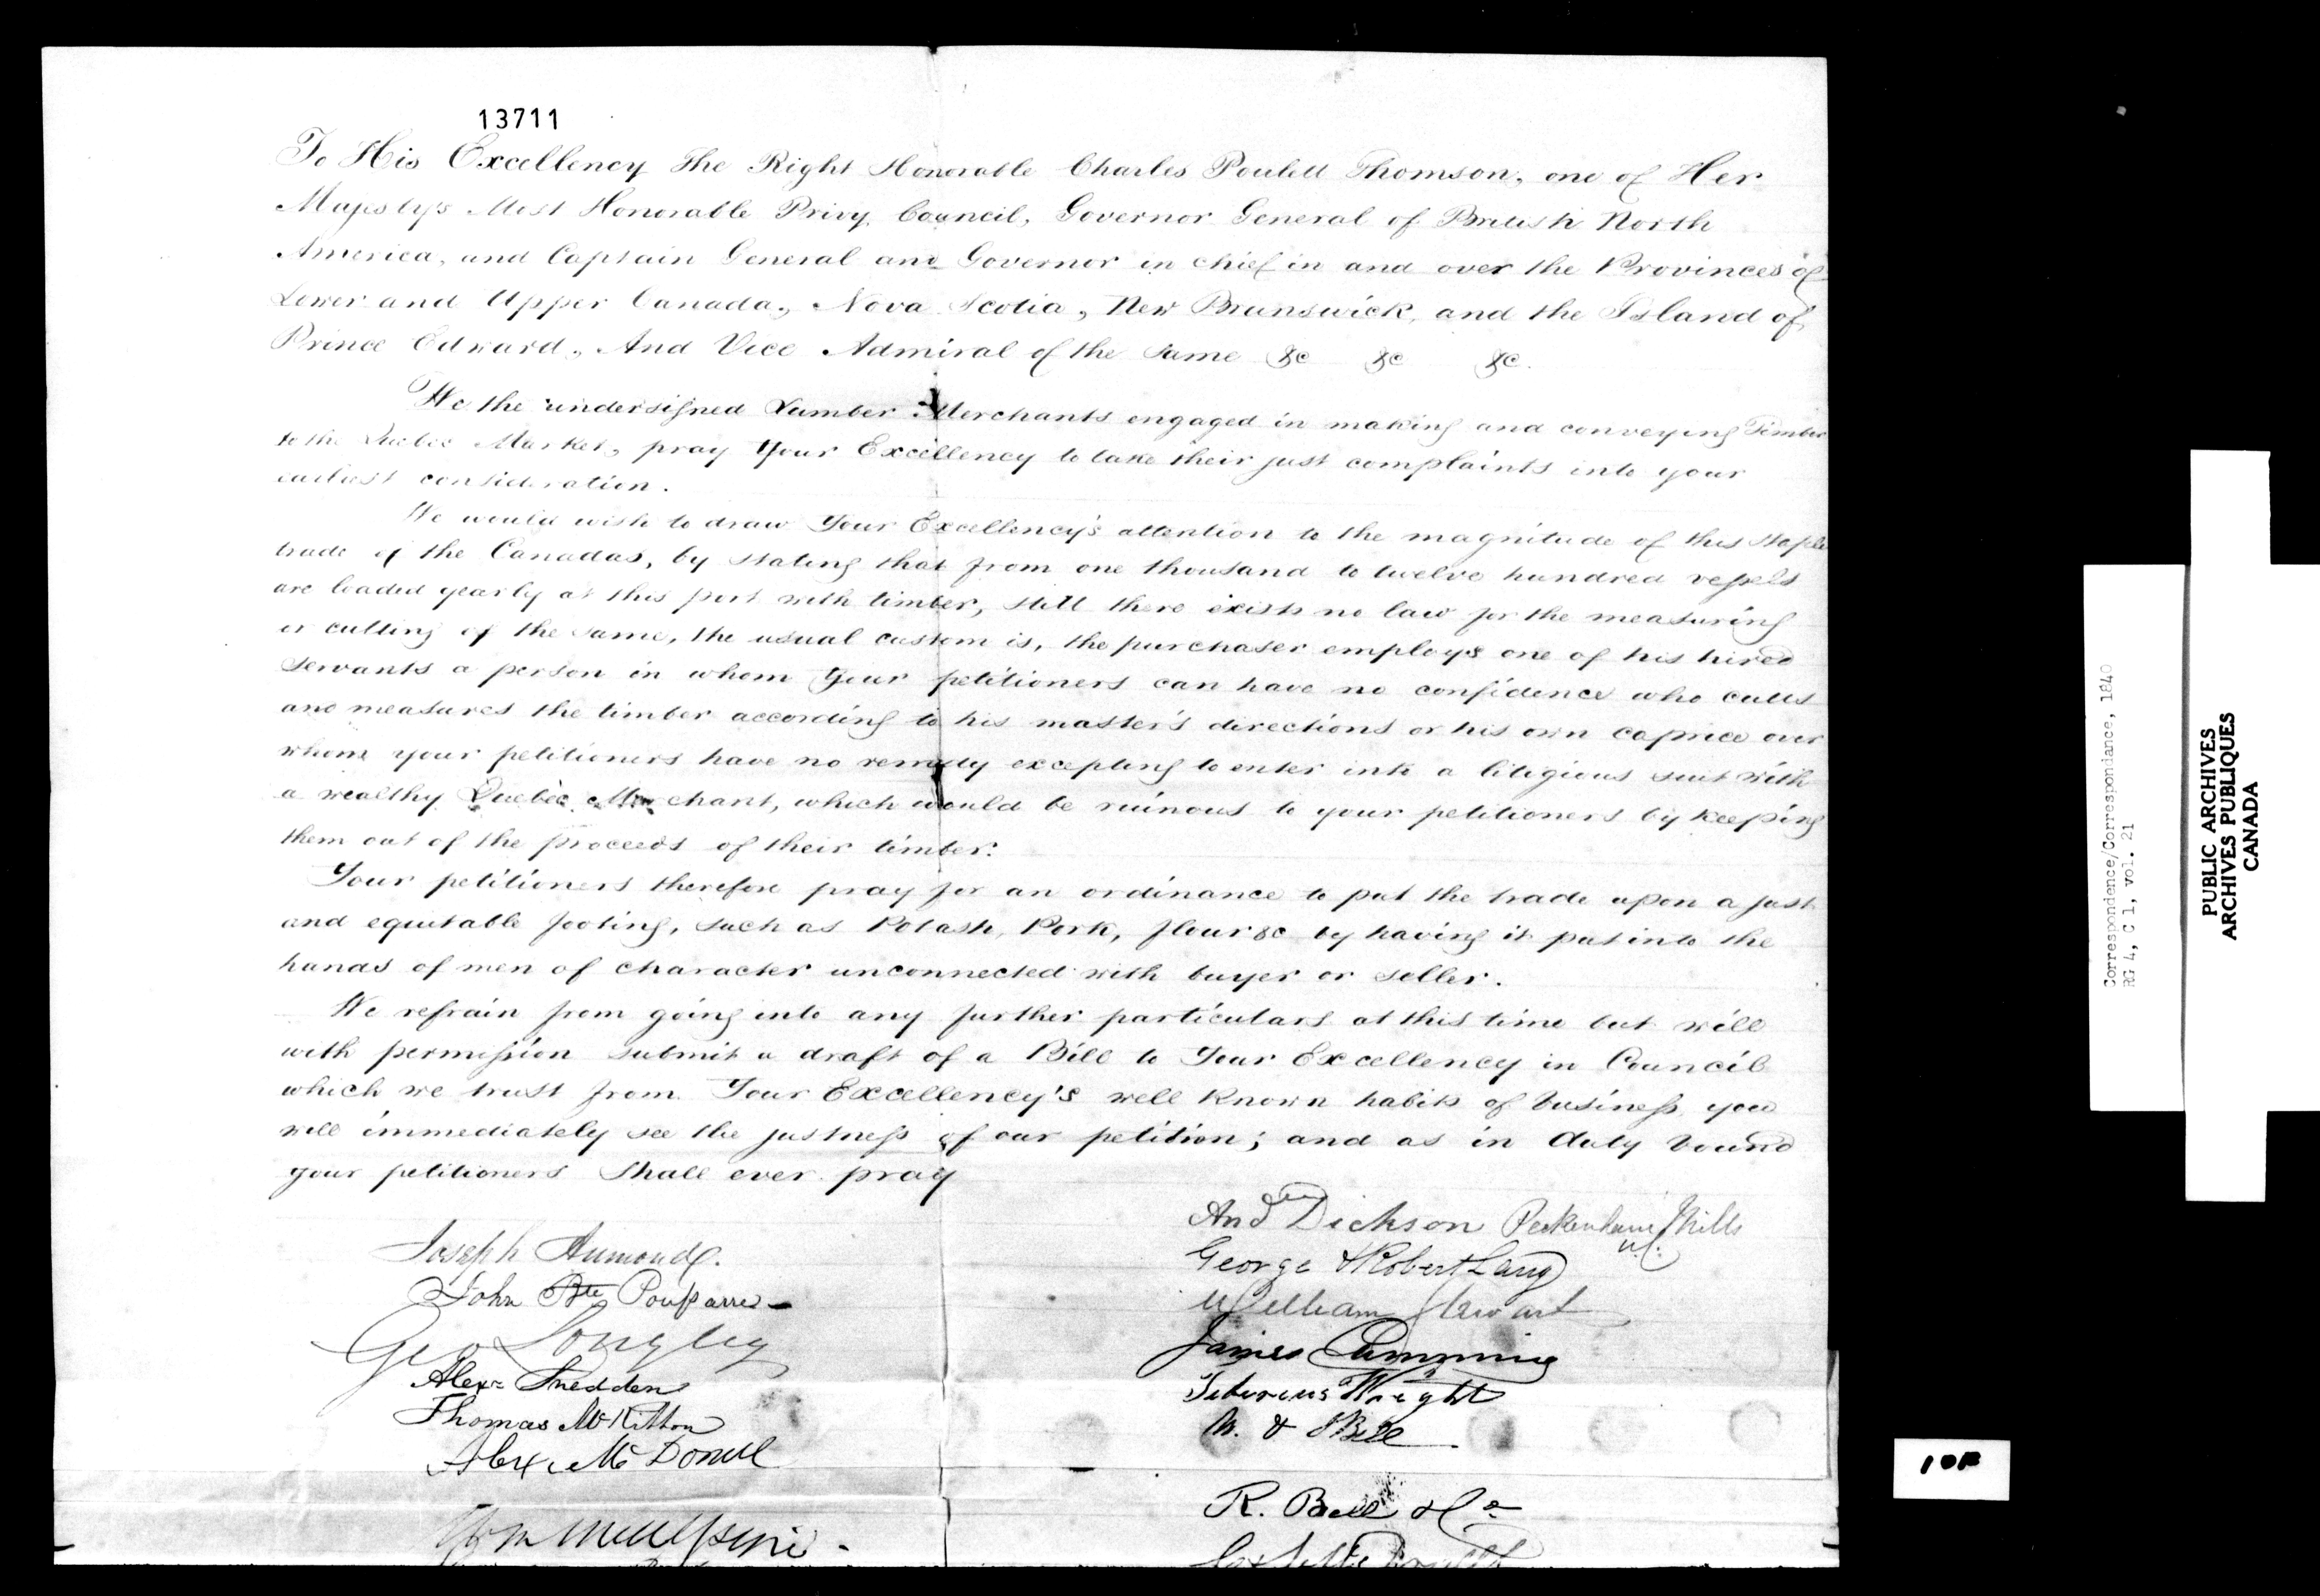 13711
To His Excellency The Right Honorable Charles Poulett Thomson, one of Her
Majesty's Most Honorable Privy Council, Governor General of British North
America, and Captain General and Governor in chief in and over the Provinces of
Lower and Upper Canada, Nova Scotia, New Brunswick, and the Island of
Prince Edward, And Vice Admiral of the same &c &c &c.
We the undersigned Lumber Merchants engaged in making and conveying Timber
to the Quebec Market, pray Your Excellency to take their just complaints into your
earliest consideration.
We would wish to draw Your Excellency's attention to the magnitude of this staple
trade of the Canadas, by stating that from one thousand to twelve hundred vessels
are loaded yearly at this port with timber, still there exists no law for the measuring
or culling of the same, the usual custom is, the purchaser employs one of his hired
servants a person in whom Your petitioners can have no confidence who culls
and measures the timber according to his master's directions or his own caprice over
whom your petitioners have no remedy excepting to enter into a litigious suit with
a wealthy Quebec Merchant, which would be ruinous to your petitioners by keeping
them out of the proceeds of their timber.
Your petitioners therefore pray for an ordinance to put the trade upon a just
and equitable footing, such as Potash, Pork, flour &c by having it put into the
hands of men of character unconnected with buyer or seller.
We refrain from going into any further particulars at this time but will
with permission submit a draft of a Bill to Your Excellency in Council
which we trust from Your Excellency's well known habits of business you
will immediately see the justness of our petition; and as in duty bound
your petitioners shall ever pray
Joseph Aumond
John Bte
Geo Longley
Alexr Snedden
Thomas McKitton
Alexr McDonell
Andw Dickson Peckenham Mills
U.C.
George & Robert Lang
William Stewart
James Cumming
Tiberius Wright
W. & J Bell
R. Bell & Co
Correspondence/Correspondance, 1840
RG 4, C 1, vol. 21
PUBLIC ARCHIVES
ARCHIVES PUBLIQUES
CANADA